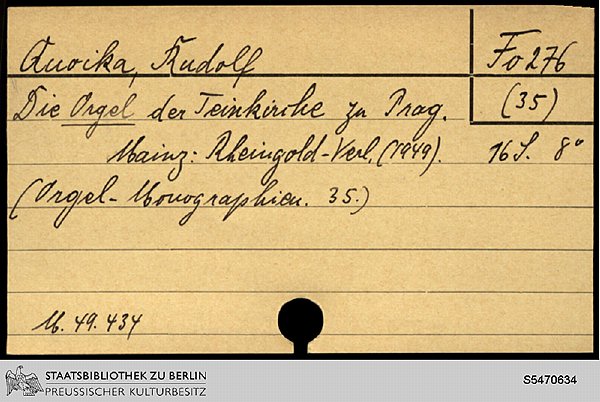 Quoika, Rudolf
Fo 276
(35)
Die Orgel der Teinkirche zu Prag.
Mainz: Rheingold-Verl. (1949). 16 S. 8°
(Orgel-Monographien. 35.)
M. 49. 434
STAATSBIBLIOTHEK ZU BERLIN
PREUSSISCHER KULTURBESITZ
S5470634